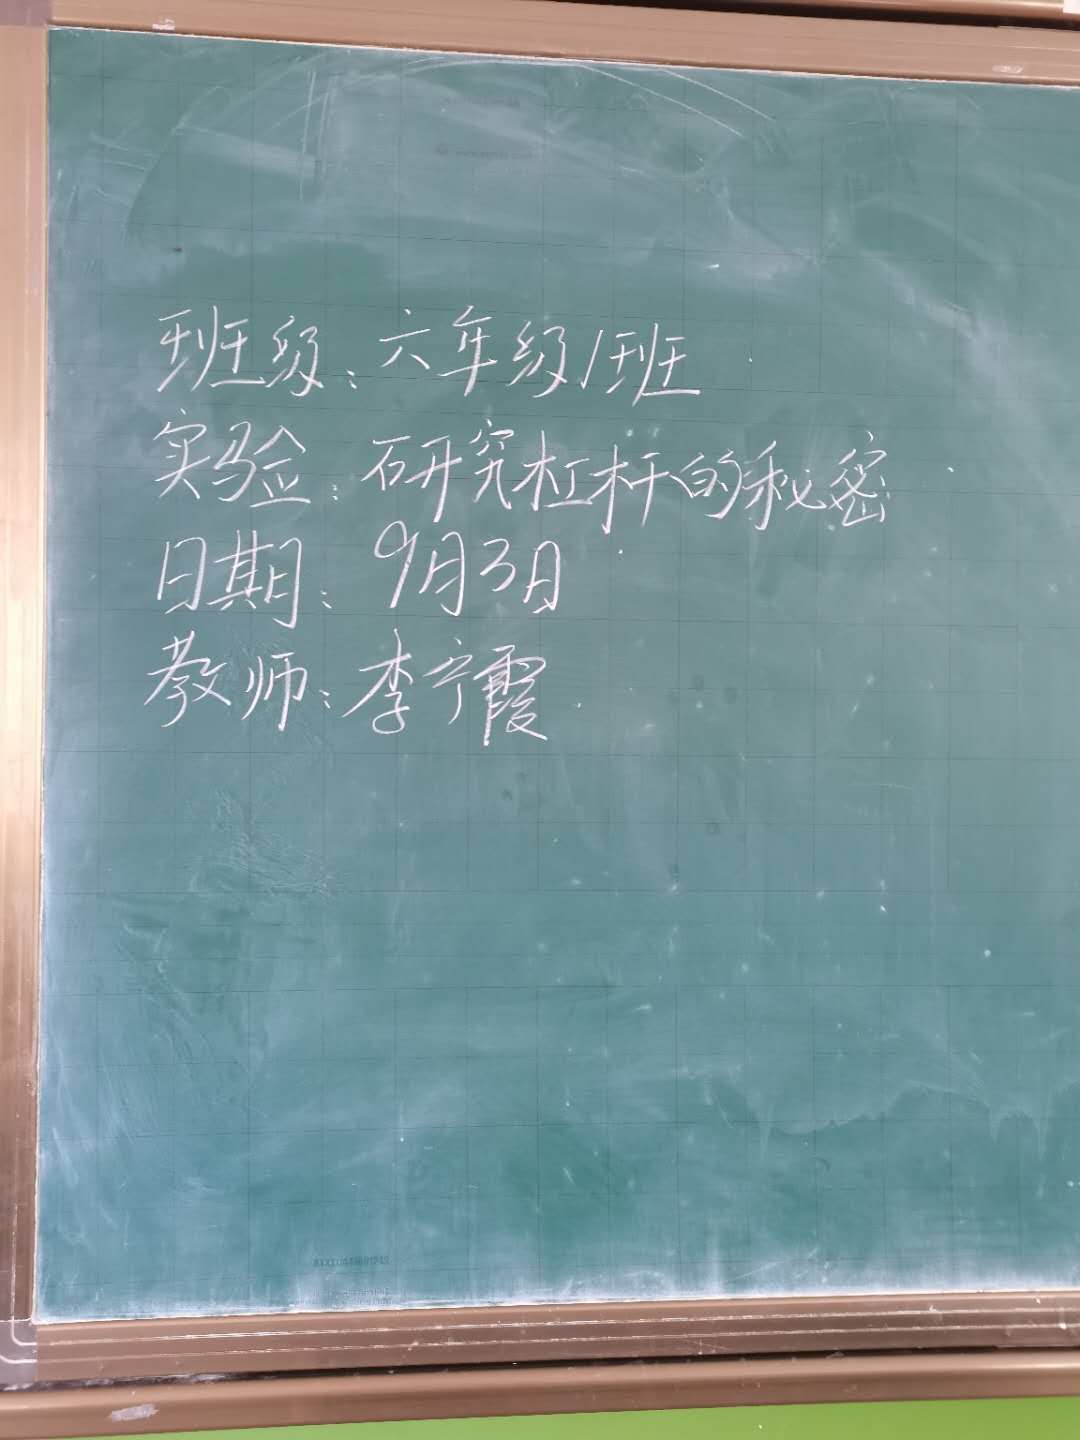 班级：六年级1班
实验：研究杠杆的秘密
日期：9月3日
教师：李宁霞